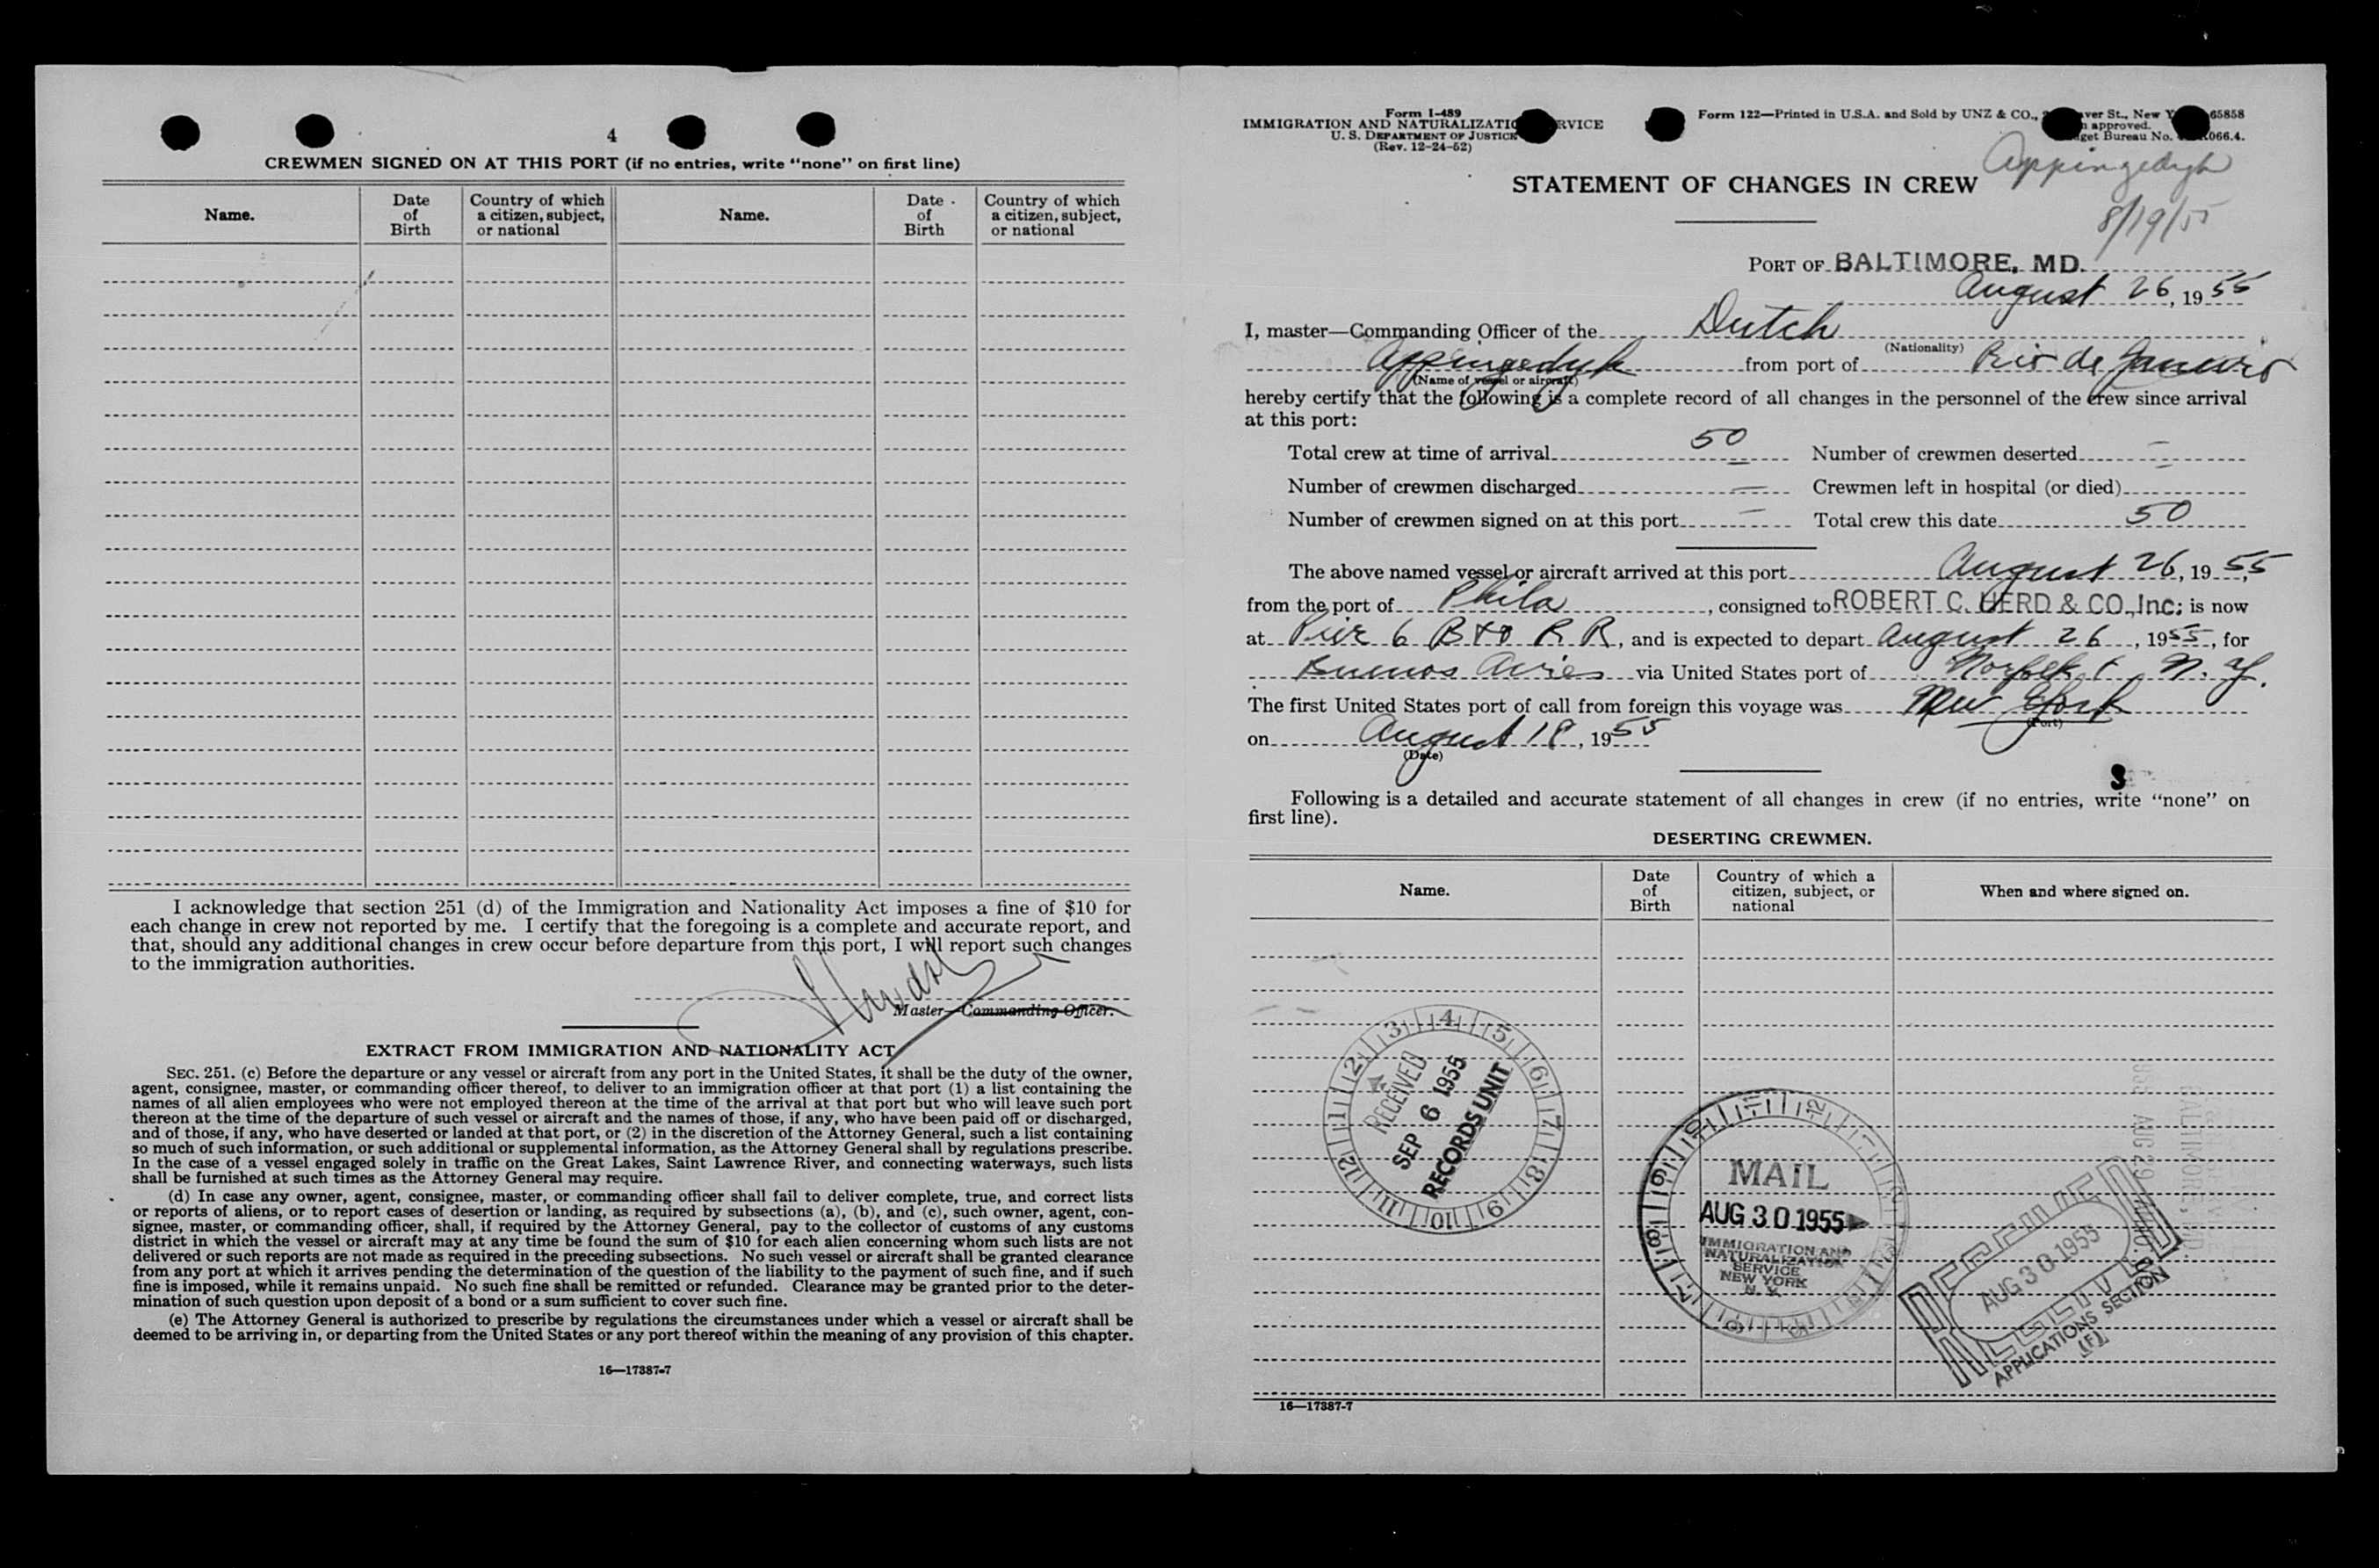 4
CREWMEN SIGNED ON AT THIS PORT (if no entries, write “none” on first line)
Name. Date of Birth Country of which a citizen, subject, or national Name. Date of Birth Country of which a citizen, subject, or national
I acknowledge that section 251 (d) of the Immigration and Nationality Act imposes a fine of $10 for
each change in crew not reported by me. I certify that the foregoing is a complete and accurate report, and
that, should any additional changes in crew occur before departure from this port, I will report such changes
to the immigration authorities.
Master—Commanding Officer.
EXTRACT FROM IMMIGRATION AND NATIONALITY ACT
SEC. 251. (c) Before the departure or any vessel or aircraft from any port in the United States, it shall be the duty of the owner,
agent, consignee, master, or commanding officer thereof, to deliver to an immigration officer at that port (1) a list containing the
names of all alien employees who were not employed thereon at the time of the arrival at that port but who will leave such port
thereon at the time of the departure of such vessel or aircraft and the names of those, if any, who have been paid off or discharged,
and of those, if any, who have deserted or landed at that port, or (2) in the discretion of the Attorney General, such a list containing
so much of such information, or such additional or supplemental information, as the Attorney General shall by regulations prescribe.
In the case of a vessel engaged solely in traffic on the Great Lakes, Saint Lawrence River, and connecting waterways, such lists
shall be furnished at such times as the Attorney General may require.
(d) In case any owner, agent, consignee, master, or commanding officer shall fail to deliver complete, true, and correct lists
or reports of aliens, or to report cases of desertion or landing, as required by subsections (a), (b), and (c), such owner, agent, con-
signee, master, or commanding officer, shall, if required by the Attorney General, pay to the collector of customs of any customs
district in which the vessel or aircraft may at any time be found the sum of $10 for each alien concerning whom such lists are not
delivered or such reports are not made as required in the preceding subsections. No such vessel or aircraft shall be granted clearance
from any port at which it arrives pending the determination of the question of the liability to the payment of such fine, and if such
fine is imposed, while it remains unpaid. No such fine shall be remitted or refunded. Clearance may be granted prior to the deter-
mination of such question upon deposit of a bond or a sum sufficient to cover such fine.
(e) The Attorney General is authorized to prescribe by regulations the circumstances under which a vessel or aircraft shall be
deemed to be arriving in, or departing from the United States or any port thereof within the meaning of any provision of this chapter.
16—17387-7
Form I-489
IMMIGRATION AND NATURALIZATIO RVICE
U. S. DEPARTMENT OF JUSTICE
(Rev. 12-24-52)
Form 122—Printed in U.S.A. and Sold by UNZ & CO., ver St., New Y 65858
approved.
get Bureau No. 066.4.
Appingedyk
8/19/55
STATEMENT OF CHANGES IN CREW
PORT OF BALTIMORE, MD.
August 26, 1955
I, master—Commanding Officer of the Dutch
(Nationality)
Appingedyk from port of Rio de Janeiro
(Name of vessel or aircraft)
hereby certify that the following is a complete record of all changes in the personnel of the crew since arrival
at this port:
Total crew at time of arrival 50 Number of crewmen deserted —
Number of crewmen discharged — Crewmen left in hospital (or died)
Number of crewmen signed on at this port — Total crew this date 50
The above named vessel or aircraft arrived at this port August 26, 1955
from the port of Phila, consigned to ROBERT C. HERD & CO., Inc; is now
at Pier 6 B & O R R, and is expected to depart August 26, 1955, for
Buenos Aires via United States port of Norfolk & N. Y.
The first United States port of call from foreign this voyage was New York
(Port)
on August 19, 1955
(Date)
Following is a detailed and accurate statement of all changes in crew (if no entries, write “none” on
first line).
DESERTING CREWMEN.
Name. Date of Birth Country of which a citizen, subject, or national When and where signed on.
RECEIVED
SEP 6 1955
RECORDS UNIT
1 2 3 4 5 6 7 8 9 10 11 12
MAIL
AUG 30 1955
IMMIGRATION AND
NATURALIZATION
SERVICE
NEW YORK
N. Y.
RECEIVED
AUG 30 1955
APPLICATIONS SECTION
(F)
1955 AUG 29
BALTIMORE, MD.
16—17387-7